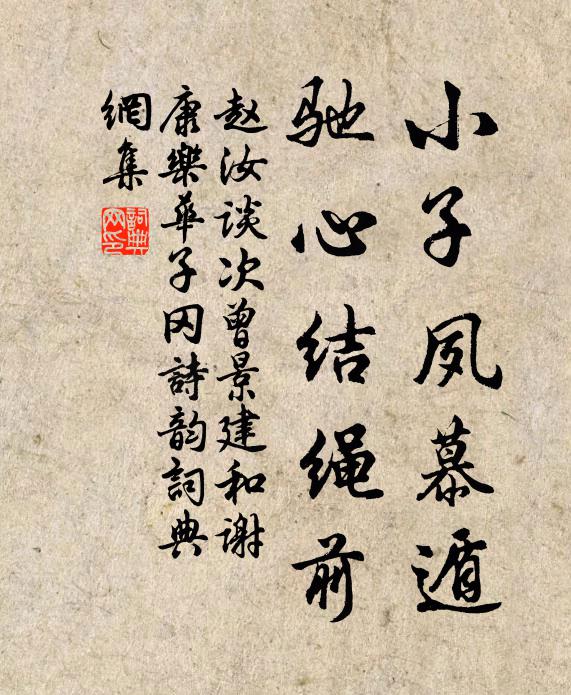 小子夙慕遁
驰心结绳前
赵汝谈次曾景建和谢
康樂華子冈詩韵詞典
網集
詞典
网印